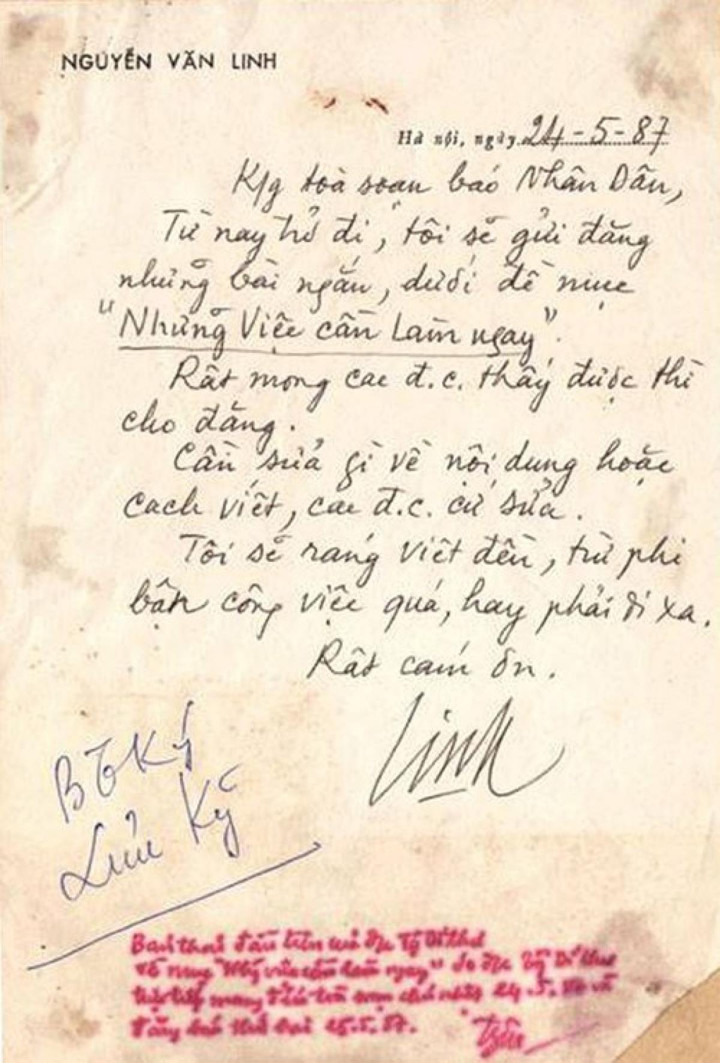 NGUYỄN VĂN LINH
Hà nội, ngày 24-5-87
K/g toà soạn báo Nhân Dân,
Từ nay trở đi, tôi sẽ gửi đăng
những bài ngắn, dưới đề mục
"Những Việc cần Làm ngay".
Rất mong các đ.c. thấy được thì
cho đăng.
Cần sửa gì về nội dung hoặc
cách viết, các đ.c. cứ sửa.
Tôi sẽ ráng viết đều, trừ phi
bận công việc quá, hay phải đi xa.
Rất cám ơn.
Linh
Lưu Kỹ
Bản thảo đầu tiên của đ/c Tg Bí thư
về mục "Nhg việc cần làm ngay" do đ/c Tg Bí thư
trực tiếp mang đến toà soạn chủ nhật 24.5.
đăng báo thứ hai 25.5.87.